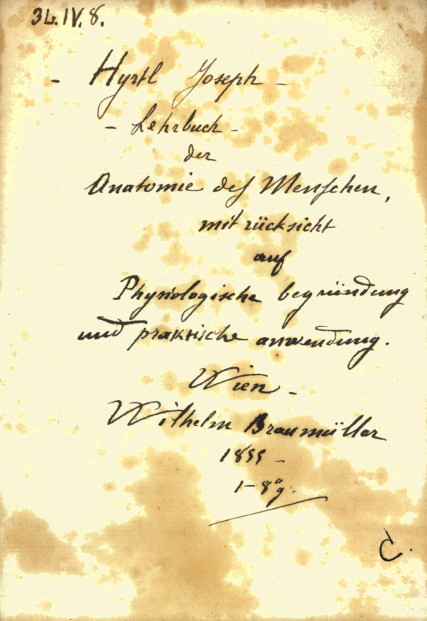 34.IV.8.
- Hyrtl Joseph -
- Lehrbuch -
der
Anatomie des Menschen,
mit rücksicht
auf
Physiologische begründung
und praktische anwendung.
Wien -
Wilhelm Braumüller
1855 -
C.